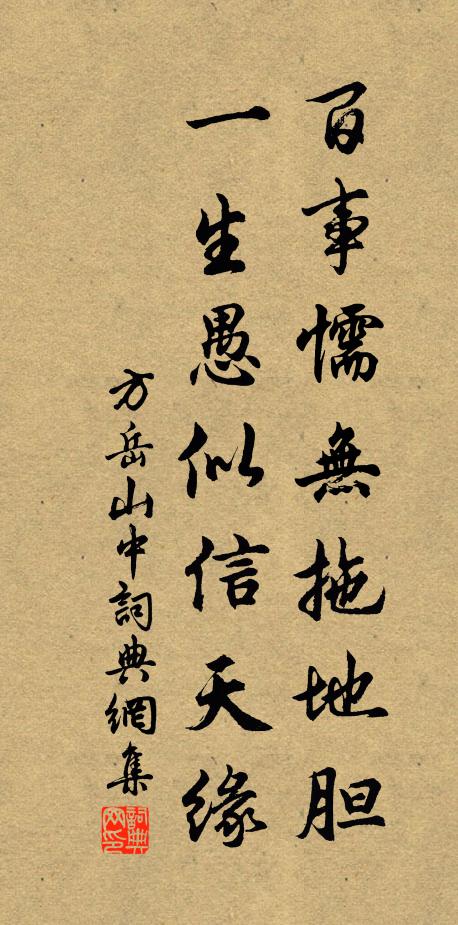 百事懦無拖地胆
一生愚似信天缘
方岳山中詞典網集
詞典网印